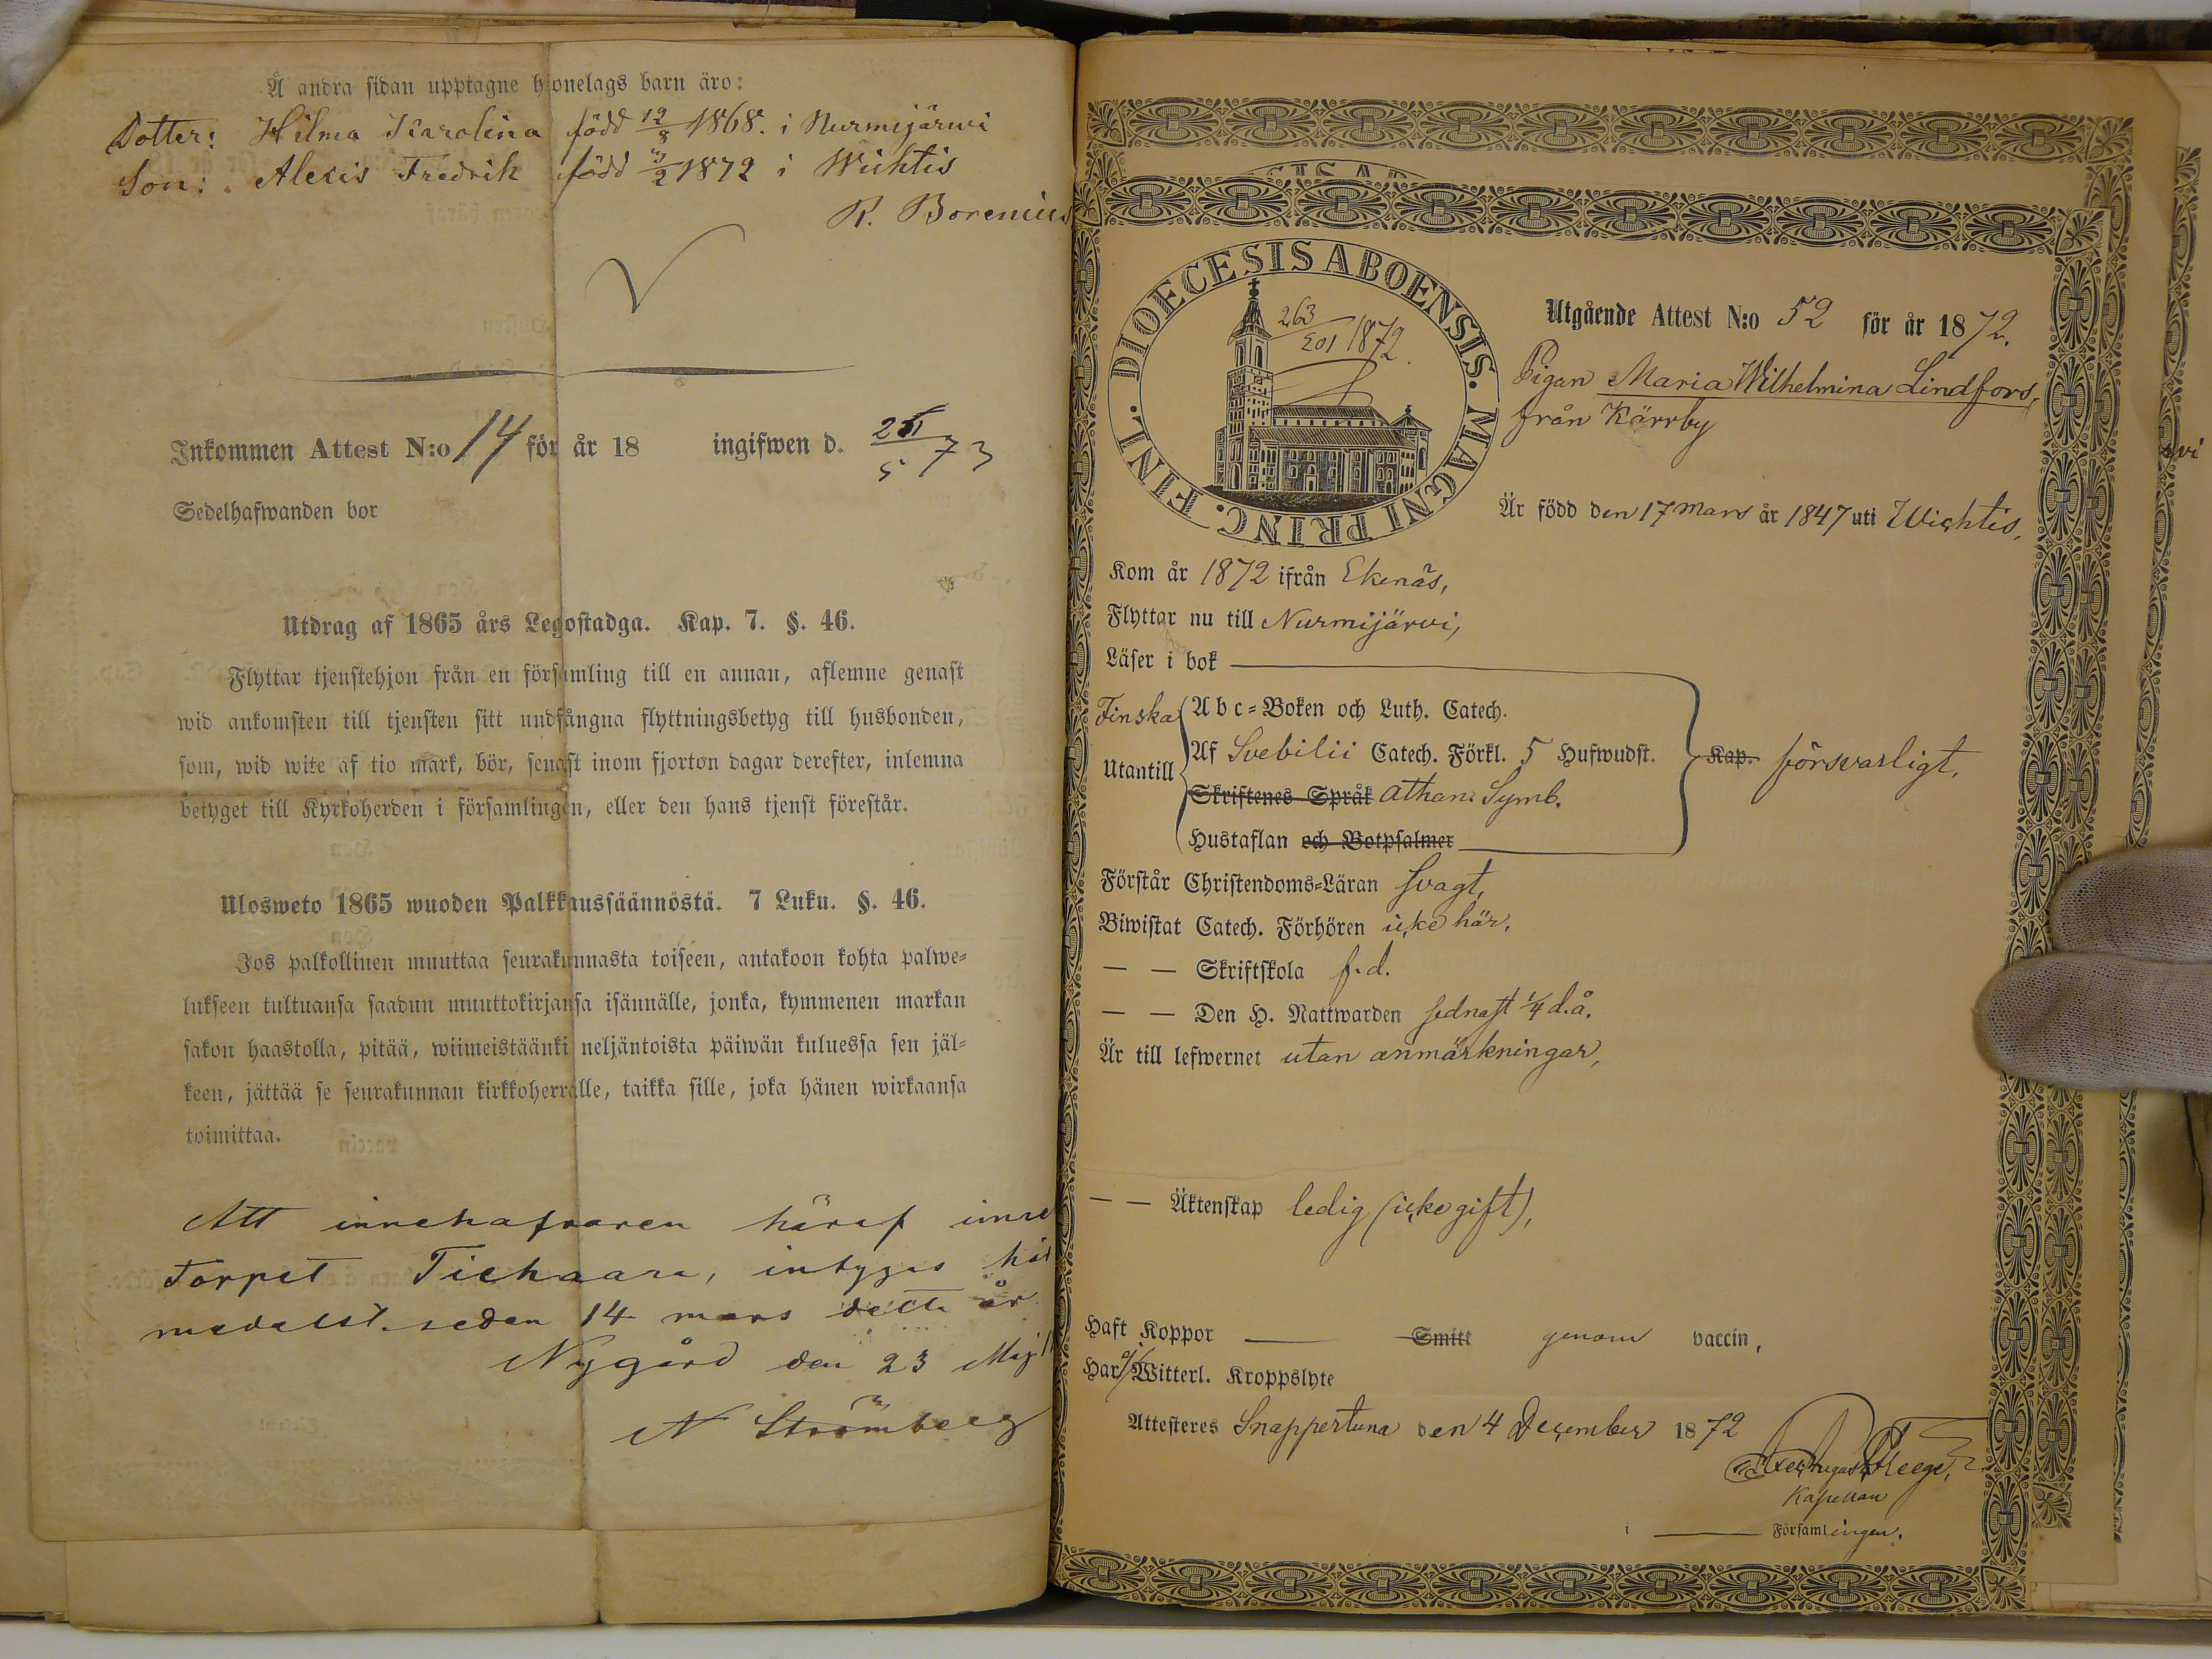 Å andra sidan upptagne hjonelags barn äro:
Dotter: Hilma Karolina född 12/8 1868. i Nurmijärwi
Son: Alexis Fredrik född /2 1872 i Wichtis
R. Borenius
Inkommen Attest N:o 14 för år 18 ingifwen d. 25/5 73
Sedelhafwanden bor
Utdrag af 1865 års Legostadga. Kap. 7. §. 46.
Flyttar tjenstehjon från en församling till en annan, aflemne genast
wid ankomsten till tjensten sitt undfångna flyttningsbetyg till husbonden,
som, wid wite af tio mark, bör, senast inom fjorton dagar derefter, inlemna
betyget till Kyrkoherden i församlingen, eller den hans tjenst förestår.
Ulosweto 1865 wuoden Palkkaussäännöstä. 7 Luku. §. 46.
Jos palkollinen muuttaa seurakunnasta toiseen, antakoon kohta palwe=
lukseen tultuansa saadun muuttokirjansa isännälle, jonka, kymmenen markan
sakon haastolla, pitää, wiimeistäänki neljäntoista päiwän kuluessa sen jäl=
keen, jättää se seurakunnan kirkkoherralle, taikka sille, joka hänen wirkaansa
toimittaa.
Att innehafvaren häraf inne
Torpet Tiehaara, intygas här
medelst. sedan 14 mars detta år
Nygård den 23 Maj
N Strömberg
DIOECESIS ABOENSIS. MAGNI PRINC. FINL.
263/201 1872.
Utgående Attest N:o 52 för år 1872.
Pigan Maria Wilhelmina Lindfors,
från Kärrby
Är född den 17 mars år 1847 uti Wichtis,
Kom år 1872 ifrån Ekenäs,
Flyttar nu till Nurmijärvi,
Läser i bok
Finska Abc=Boken och Luth. Catech.
Utantill Af Svebilii Catech. Förkl. 5 Hufwudst. Kap. försvarligt.
Skriftenes Språk Athan. Symb.
Hustaflan och Botpsalmer
Förstår Christendoms=Läran svagt,
Biwistat Catech. Förhören icke här,
— — Skriftskola f. d.
— — Den H. Nattwarden sednast 1/4 d.å.
Är till lefwernet utan anmärkningar,
— — Äktenskap ledig (icke gift),
Haft Koppor Smitt genom vaccin,
Har Witterl. Kroppslyte
Attesteres Snappertuna den 4 December 1872
Kapellan
i Församlingen.